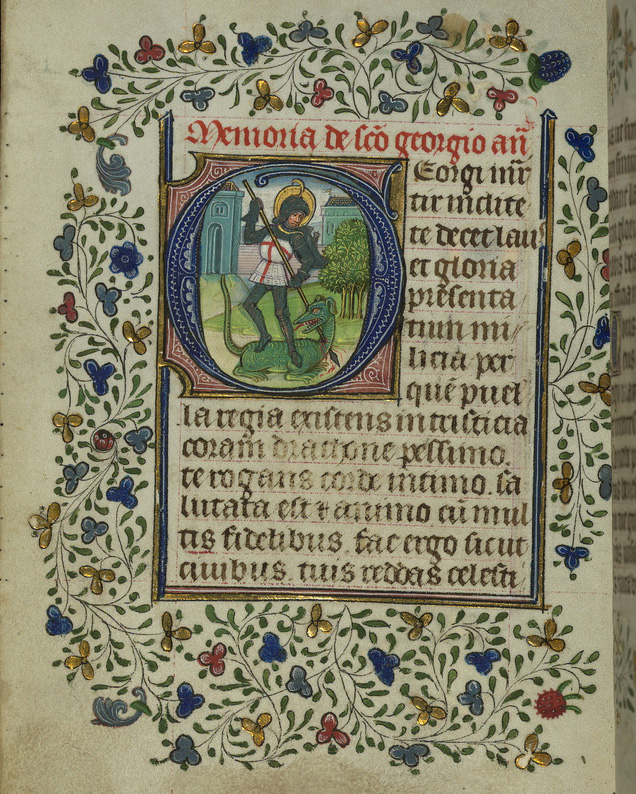 Memoria de sc̄o georgio an̄
GEorgi mr̄
tir inclite
te decet lau
et gloria
presenta
tium mi
licia per
quē puel
la regia existens in tristicia
coram drachone pessimo.
te rogans corde intimo. sa
lutata est & animo cū mul
tis fidelibus. fac ergo sicut
ciuibus. tuis reddas celesti